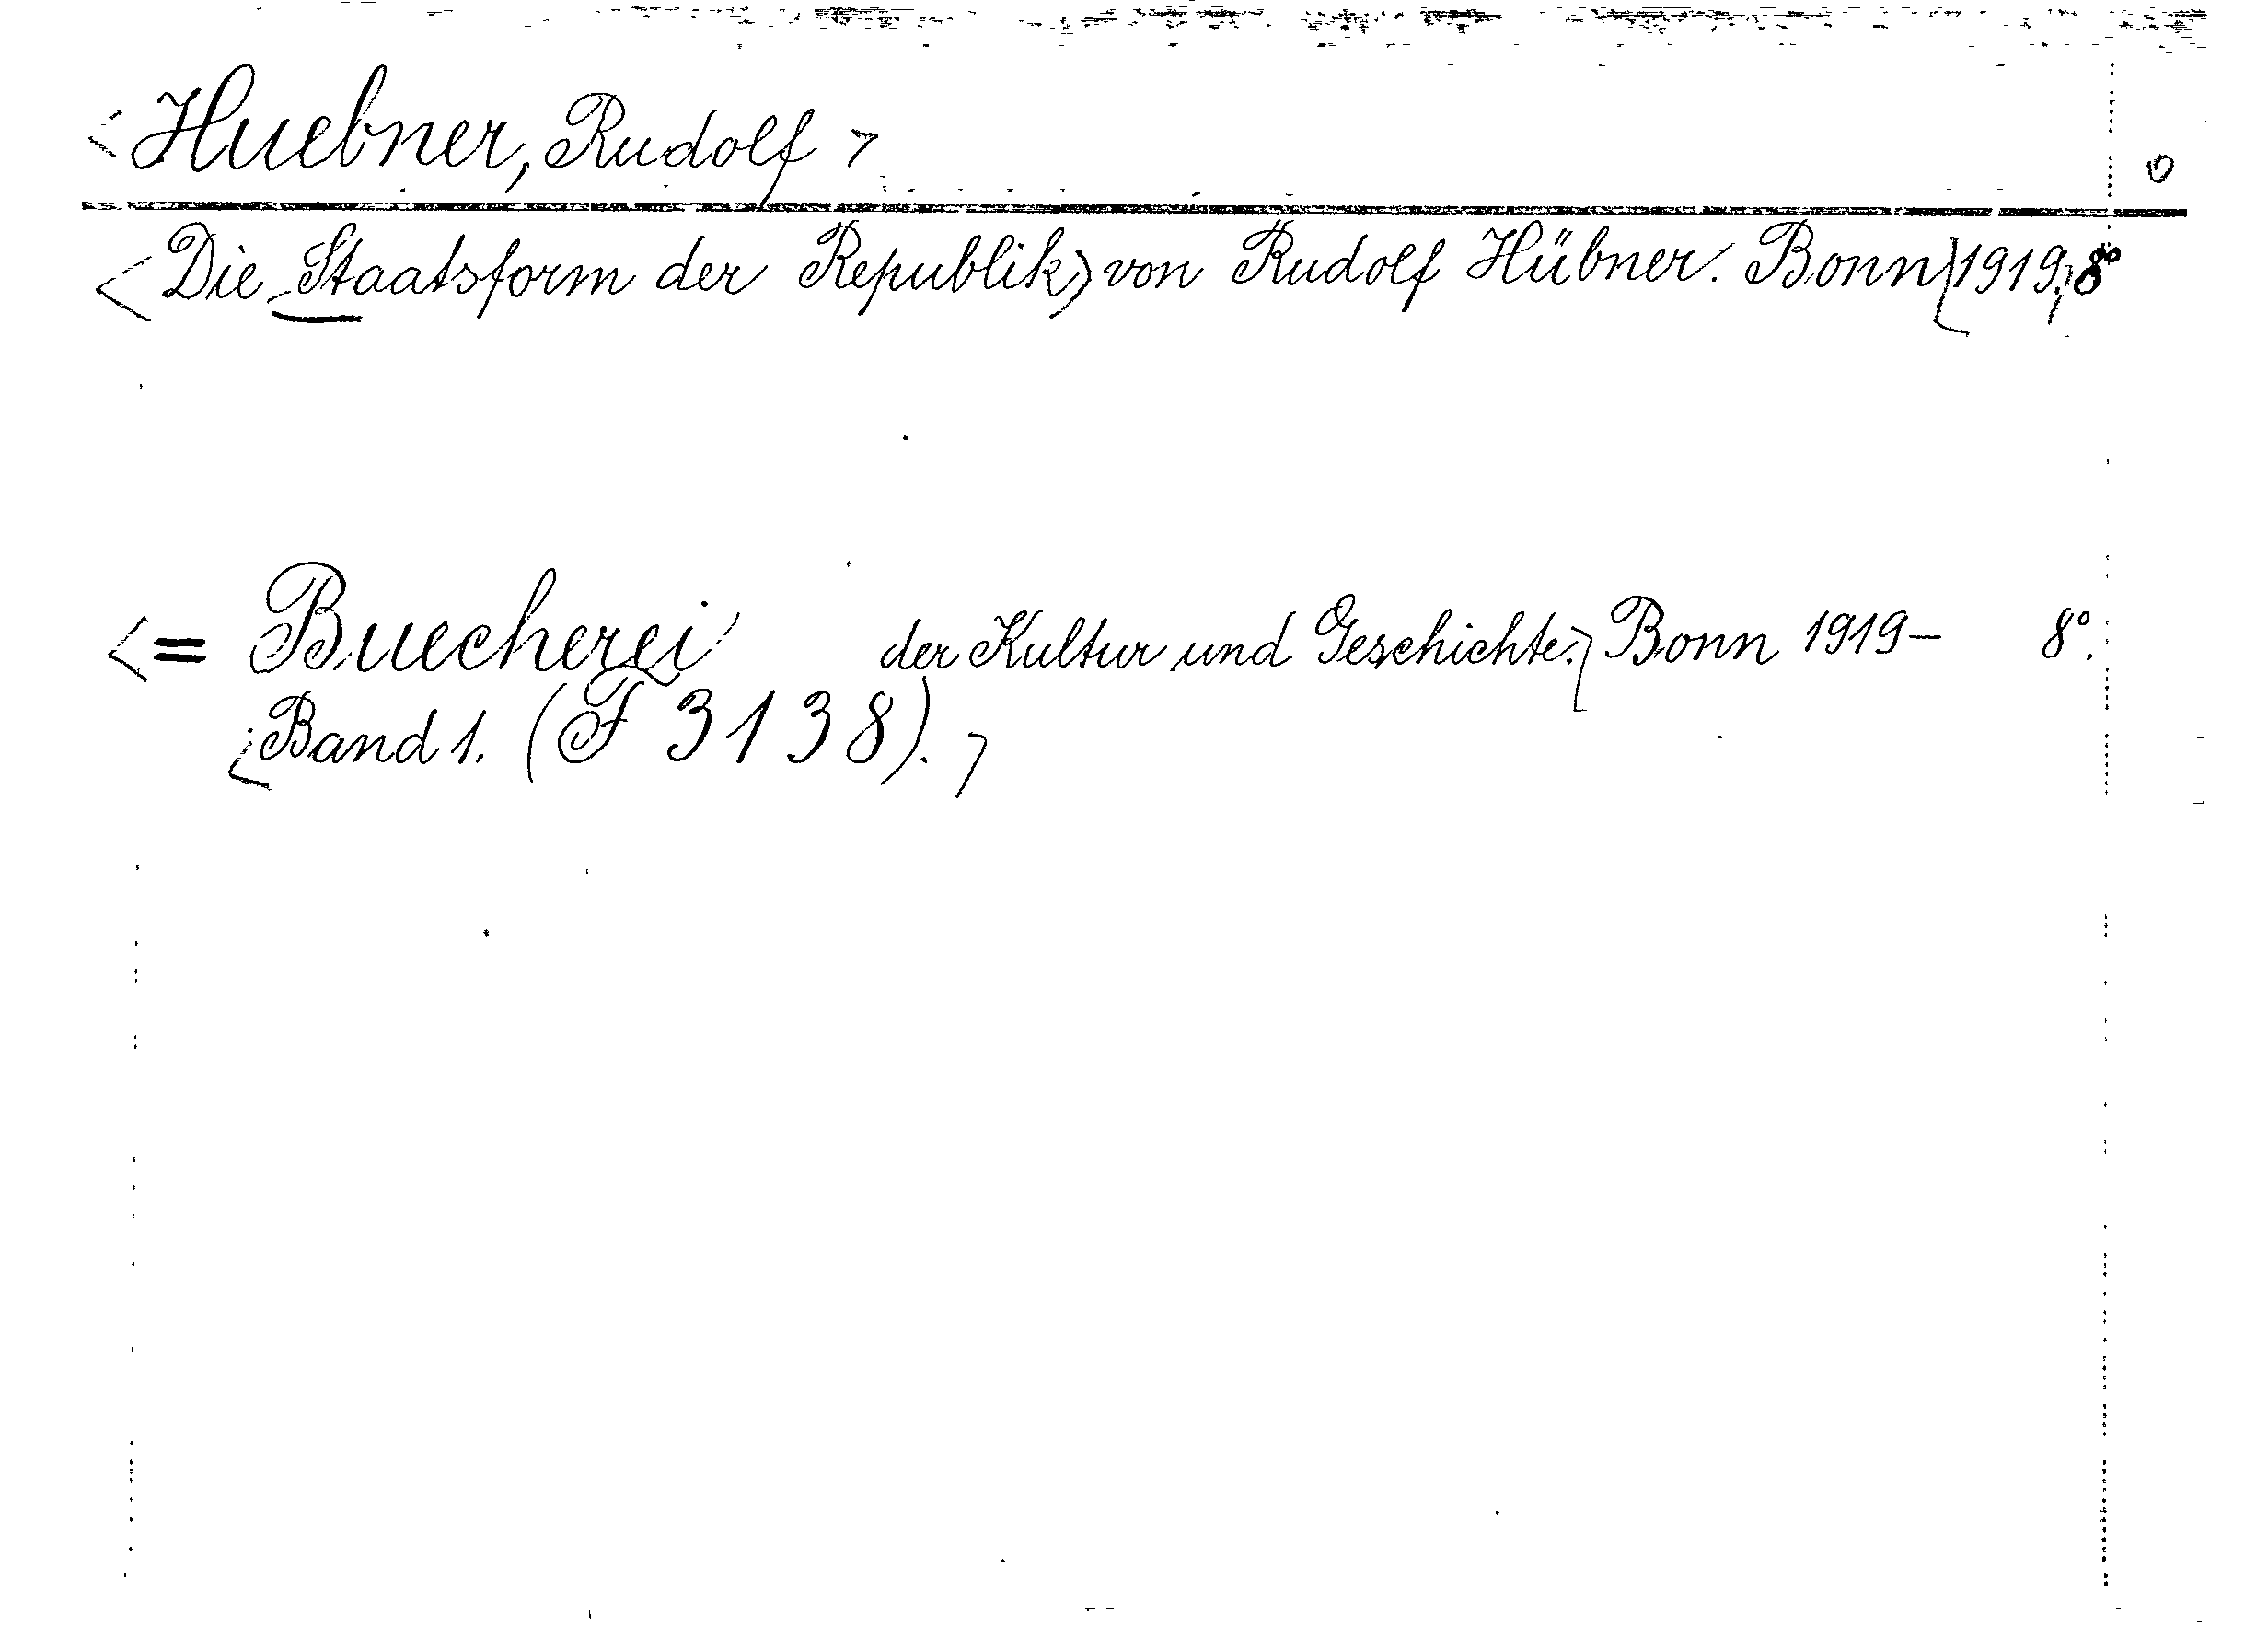 <Huebner, Rudolf>
0
<Die Staatsform der Republik> von Rudolf Hübner. Bonn <1919.> 8°
<= Buecherei der Kultur und Geschichte.> Bonn 1919– 8°.
<Band 1. (F 3138).>